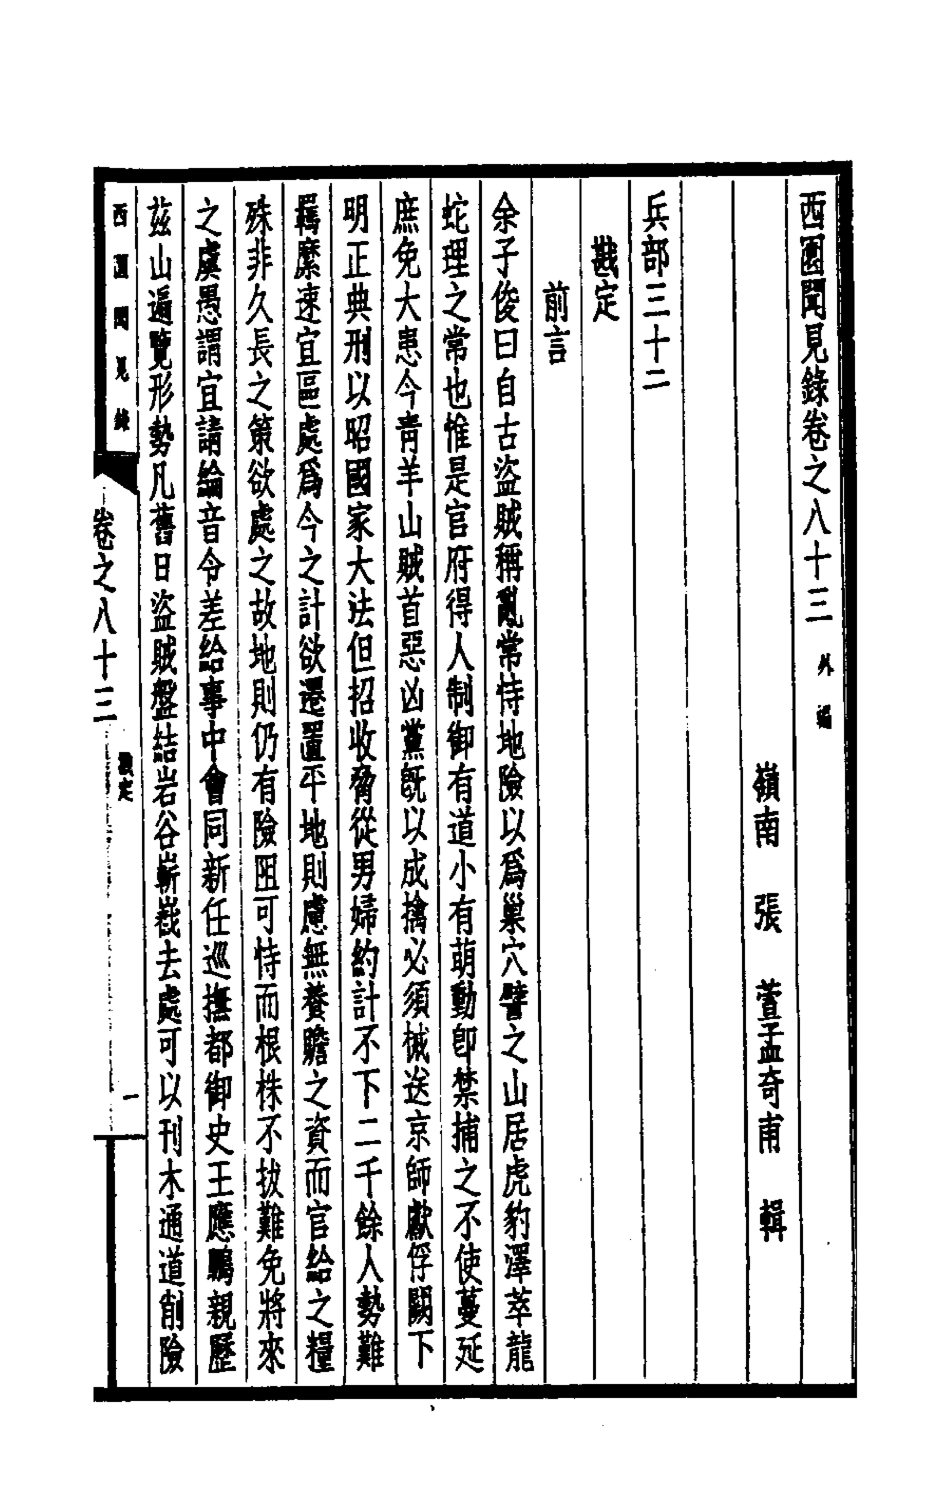 西園聞見錄卷之八十三 外編
嶺南 張 萱孟奇甫 輯
兵部三十二
戡定
前言
余子俊曰自古盜賊稱亂常恃地險以爲巢穴譬之山居虎豹澤萃龍
蛇理之常也惟是官府得人制御有道小有萌動卽禁捕之不使蔓延
庶免大患今青羊山賊首惡凶黨旣以成擒必須械送京師獻俘闕下
明正典刑以昭國家大法但招收脅從男婦約計不下二千餘人勢難
羈縻速宜區處爲今之計欲還置平地則慮無養贍之資而官給之糧
殊非久長之策欲處之故地則仍有險阻可恃而根株不拔難免將來
之虞愚謂宜請綸音令差給事中會同新任巡撫都御史王應鵬親歷
茲山遍覽形勢凡舊日盜賊盤結岩谷嶄巀去處可以刊木通道削險
西園聞見錄
卷之八十三
戡定
一